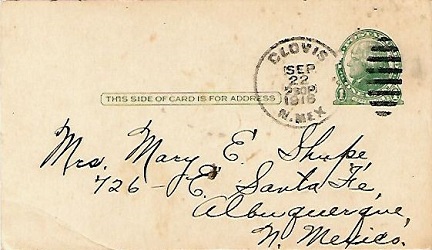 CLOVIS
SEP
22
1916
N. MEX
THIS SIDE OF CARD IS FOR ADDRESS
Mrs. Mary E. Shupe,
726 - E. Santa Fe,
Albuquerque,
N. Mexico.